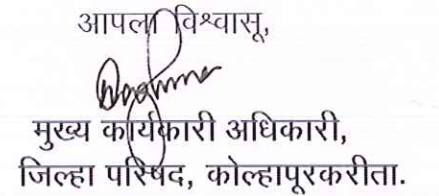 आपला विश्वासू,
मुख्य कार्यकारी अधिकारी,
जिल्हा परिषद, कोल्हापूरकरीता.